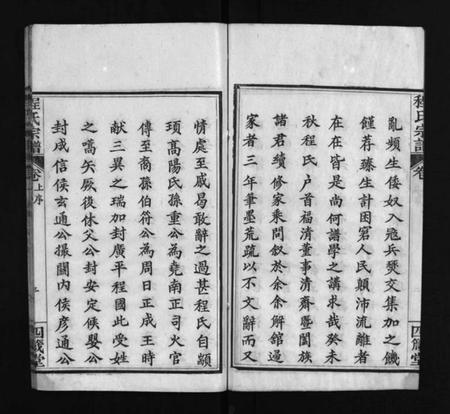 程氏宗譜
卷
四箴堂
亂頻生倭奴入寇兵燹交集加之饑
饉荐臻生計困窮人民顛沛流離者
在在皆是尚何譜學之講求哉癸未
秋程氏户首福清董事清齋暨闔族
諸君續修家乘問叙於余余解館邊
家者三年筆墨荒疏以不文辭而又
情處至戚曷敢辭之過甚程氏自顓
頊高陽氏孫重公為堯南正司火官
傳至裔孫伯符公為周日正成王時
献三異之瑞加封廣平程國此受姓
之嚆矢厥後休父公封安定候嬰公
封成信侯玄通公撮關内侯彦通公
程氏宗譜
卷上序
四箴堂